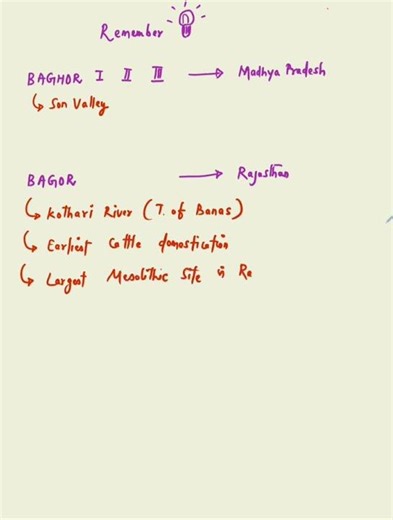 Remember
BAGHOR I II III → Madhya Pradesh
↳ Son Valley
BAGOR → Rajasthan
↳ Kothari River (T. of Banas)
↳ Earliest Cattle domostication
↳ Largest Mesolithic Site in Ra